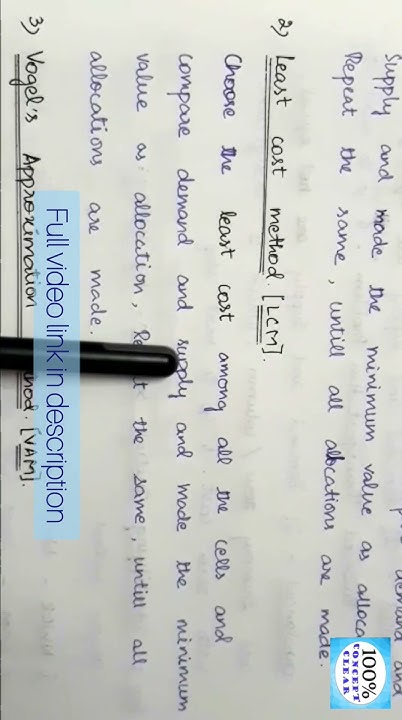 demand and
supply and made the minimum value as alloca
Repeat the same, untill all allocations are made.
2) Least cost method. [LCM].
Choose the least cost among all the cells and
compare demand and supply and made the minimum
value as allocation, the same, untill all
allocations are made.
3) Vogel's Approximation [VAM].
Full video link in description
100%
CONCEPT
CLEAR